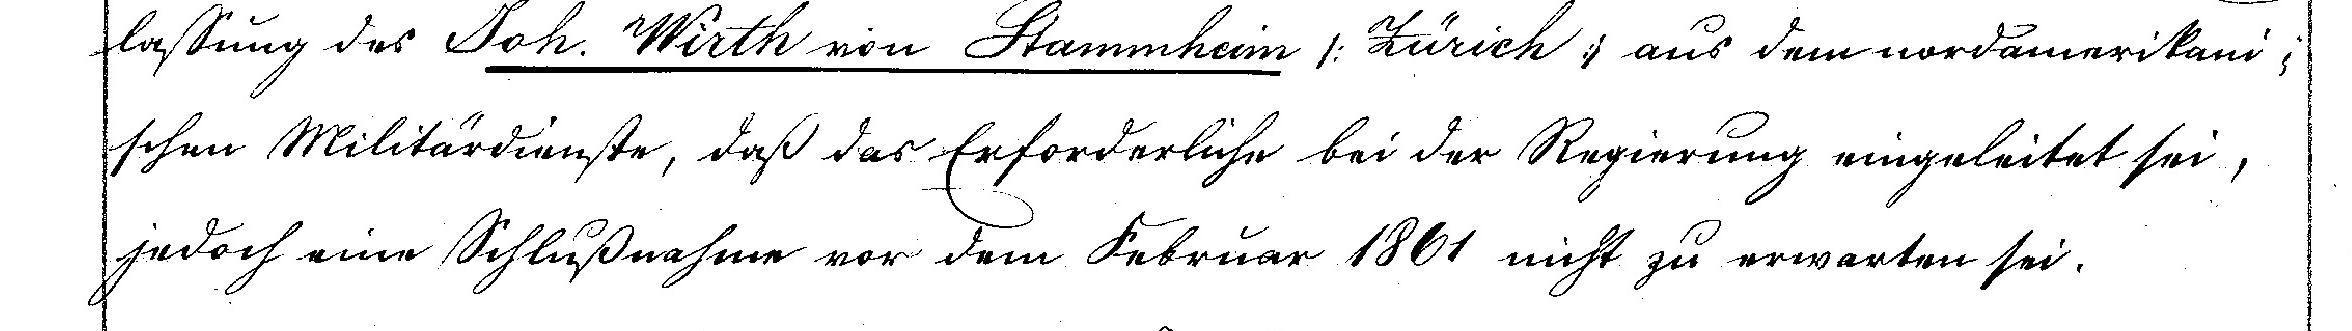 lassung des Joh. Wirth von Stammheim /: Zürich :/ aus dem nordamerikani-
schen Militärdienste, daß das Erforderliche bei der Regierung eingeleitet sei,
jedoch eine Schlußnahme vor dem Februar 1861 nicht zu erwarten sei.